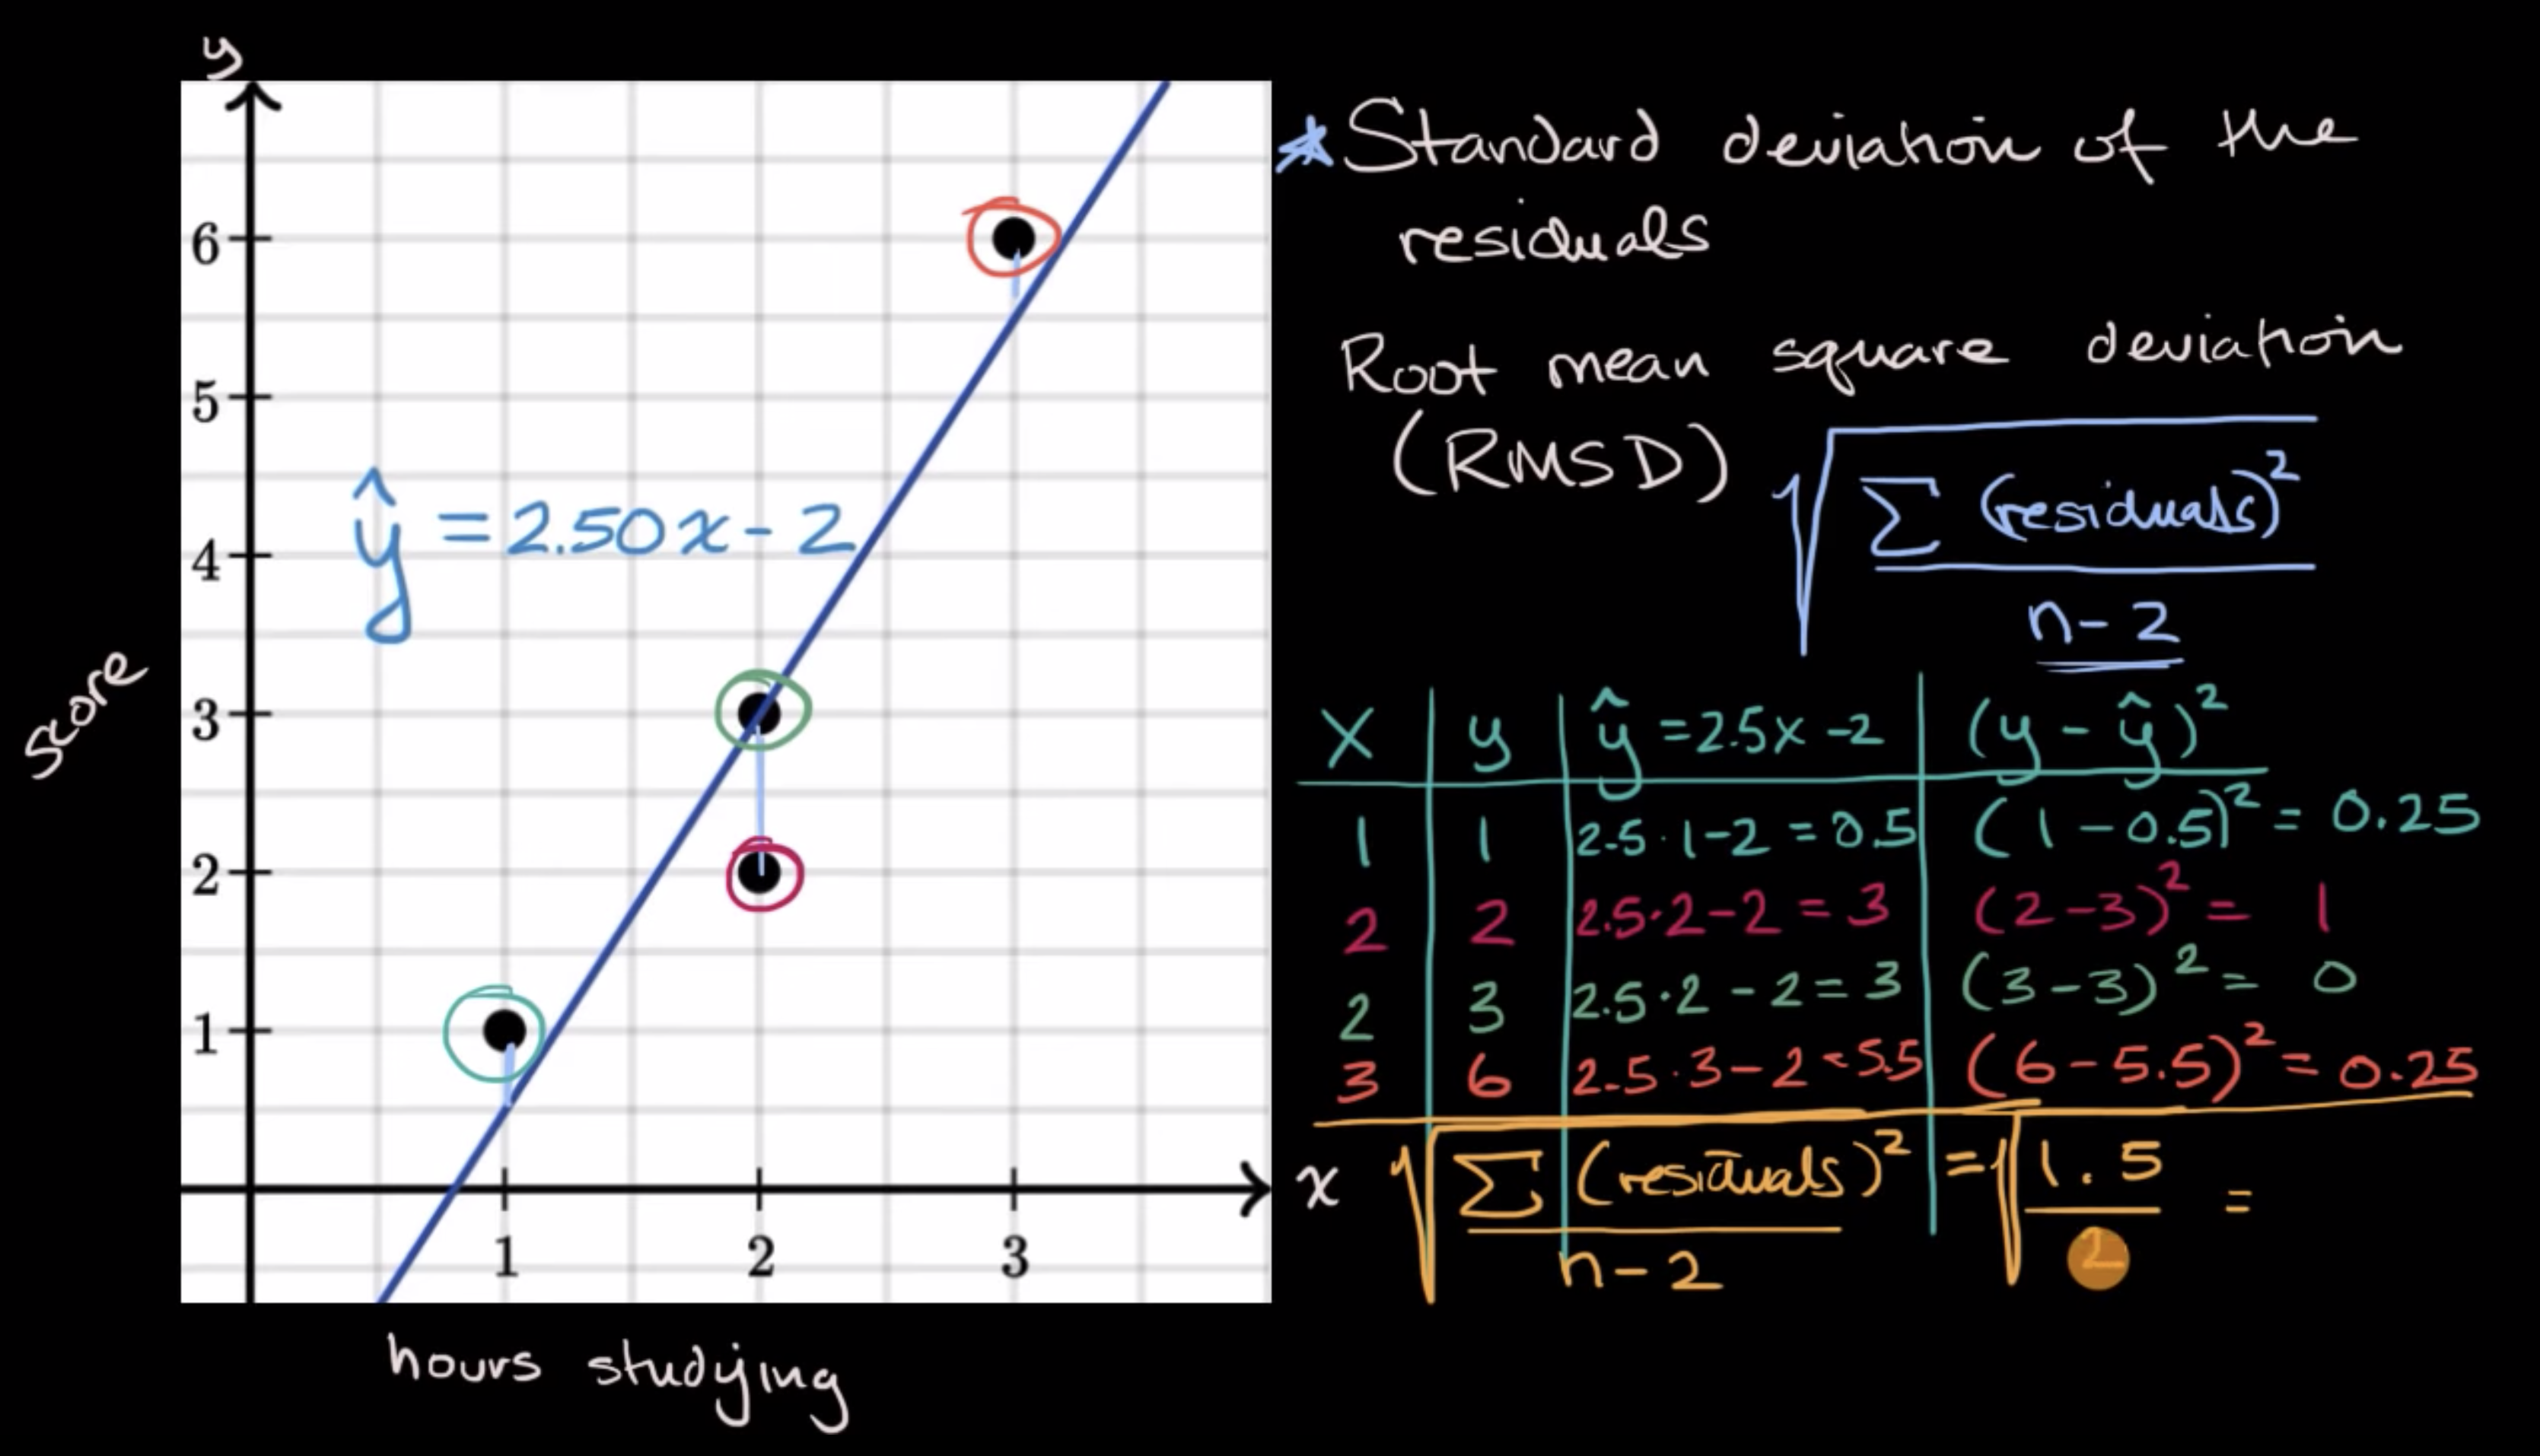 y
6
5
4
3
2
1
1 2 3
x
ŷ = 2.50x - 2
score
hours studying
* Standard deviation of the
residuals
Root mean square deviation
(RMSD) √(Σ (residuals)² / n-2)
x | y | ŷ = 2.5x - 2 | (y - ŷ)²
1 | 1 | 2.5·1-2 = 0.5 | (1 - 0.5)² = 0.25
2 | 2 | 2.5·2-2 = 3 | (2-3)² = 1
2 | 3 | 2.5·2-2 = 3 | (3-3)² = 0
3 | 6 | 2.5·3-2 = 5.5 | (6-5.5)² = 0.25
√(Σ (residuals)² / n-2) = √(1.5 / 2) =